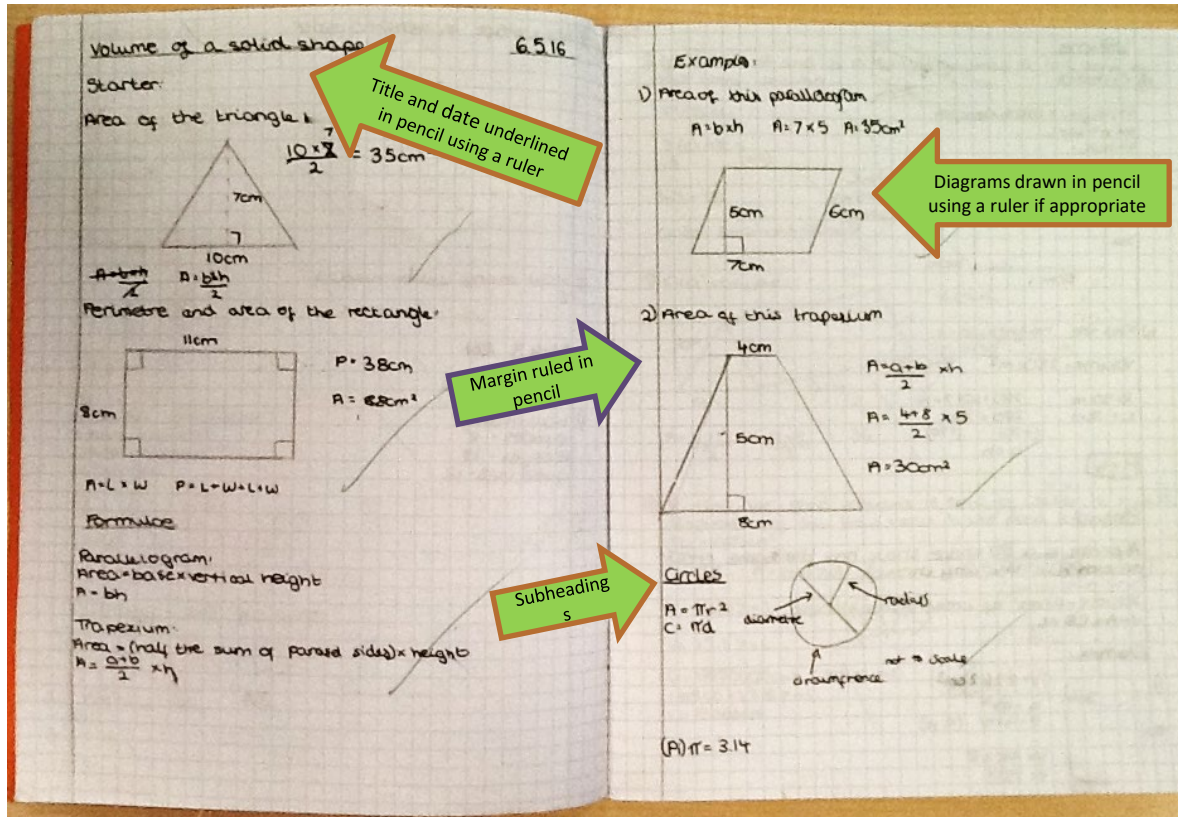 Volume of a solid shape 6.5.16
Starter:
Area of the triangle:
10 × 7 / 2 = 35cm
7
7cm
10cm
A=b×h / 2
A=b×h / 2
Perimetre and area of the rectangle:
11cm
8cm
P= 38cm
A= 88cm²
A=L×W P=L+W+L+W
Formulae
Parallelogram:
Area=base×vertical height
A=bh
Trapezium:
Area=(half the sum of parallel sides)×height
A= a+b / 2 ×h
Title and date underlined
in pencil using a ruler
Margin ruled in
pencil
Subheading
s
Example:
1) Area of this parallelogram
A=b×h A=7×5 A=35cm²
5cm
6cm
7cm
Diagrams drawn in pencil
using a ruler if appropriate
2) Area of this trapezium
4cm
5cm
8cm
A= a+b / 2 ×h
A= 4+8 / 2 ×5
A=30cm²
Circles
A=πr²
C=πd
diametre
radius
circumfrence
not to scale
(A)π=3.14